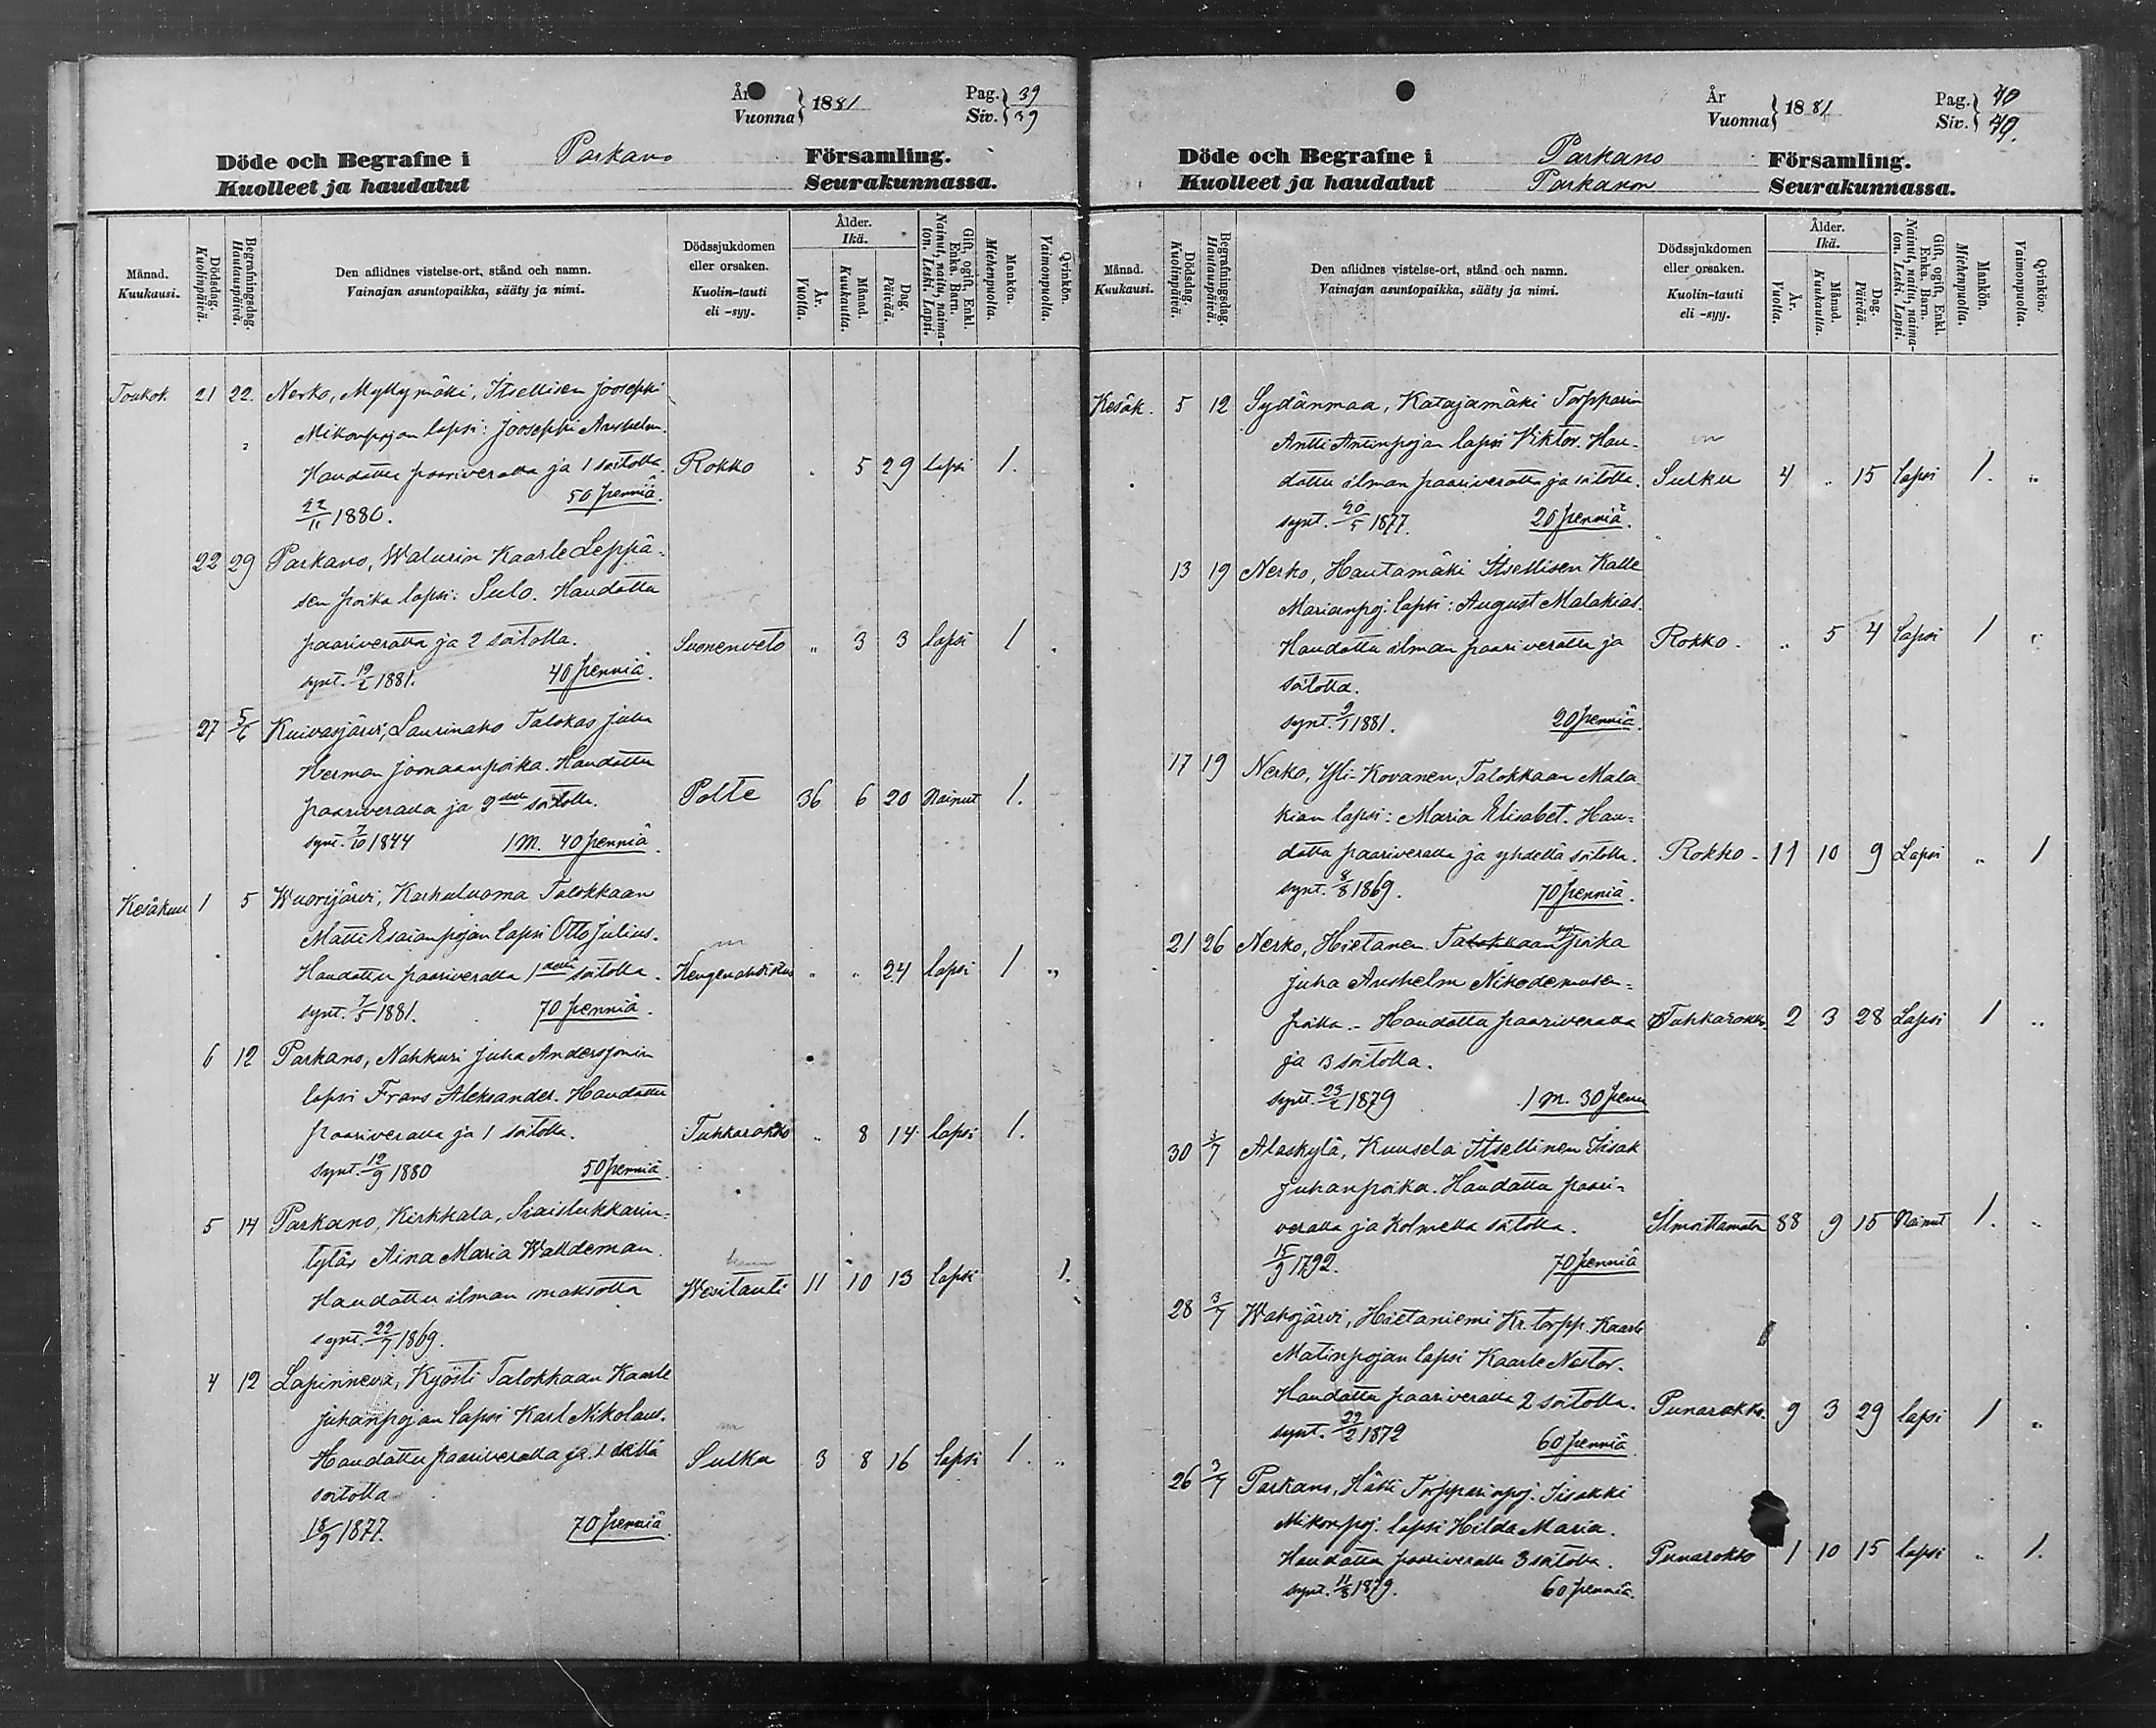 År Vuonna } 1881 Pag. Siv. } 39 39
Döde och Begrafne i Parkano Församling.
Kuolleet ja haudatut Seurakunnassa.
Månad. Kuukausi. Dödsdag. Kuolinpäivä. Begrafningsdag. Hautauspäivä. Den aflidnes vistelse-ort, stånd och namn. Vainajan asuntopaikka, sääty ja nimi. Dödssjukdomen eller orsaken. Kuolin-tauti eli -syy. Ålder. Ikä. År. Vuotta. Månad. Kuukautta. Dag. Päivää. Gift, ogift, Enkl. Enka. Barn. Nainut, naitu, naimaton. Leski. Lapsi. Mankön. Miehenpuolia. Qvinkön. Vaimonpuolia.
Toukok. 21 22. Nerko, Myllymäki, Itsellisen Joosephi
Mikonpojan lapsi: Joosephi Anshelm.
Haudattu paariveralla ja 1 soitolla. Rokko 5 29 lapsi 1.
22/11 1880. 50 penniä.
22 29 Parkano, Walurin Kaarle Leppä-
sen poika lapsi: Sulo. Haudattu
paariveralla ja 2 soitolla. Suonenveto " 3 3 lapsi 1
synt. 19/2 1881. 40 penniä.
27 5/6 Kuivasjärvi, Laurinaho Talokas Juha
Herman Joonaanpoika. Haudattu
paariveralla ja 2della soitolla. Polte 36 6 20 Nainut 1.
synt. 7/10 1844 1 M. 40 penniä.
Kesäkuu 1 5 Wuorijärvi, Karhuluoma Talokkaan
Matti Esaianpojan lapsi Otto Julius.
Haudattu paariveralla 1della soitolla. Hengenahdistus " " 24 lapsi 1 "
synt. 7/5 1881. 70 penniä.
6 12 Parkano, Nahkuri Juha Andersjonin
lapsi Frans Aleksander. Haudattu
paariveralla ja 1 soitolla. Tuhkarokko " 8 14 lapsi 1.
synt. 12/9 1880 50 penniä.
5 14 Parkano, Kirkkala,
tytär Aina Maria Walldeman.
Haudattu ilman maksotta Wesitauti 11 10 13 lapsi 1.
synt. 22/7 1869.
4 12 Lapinneva, Kyösti Talokkaan Kaarle
Juhanpojan lapsi Karl Nikolaus.
Haudattu paariveralla ja 1 dellä Sulka 3 8 16 lapsi 1. "
soitolla
18/9 1877. 70 penniä.
År Vuonna } 1881 Pag. Siv. } 40 40.
Döde och Begrafne i Parkano Församling.
Kuolleet ja haudatut Parkanon Seurakunnassa.
Månad. Kuukausi. Dödsdag. Kuolinpäivä. Begrafningsdag. Hautauspäivä. Den aflidnes vistelse-ort, stånd och namn. Vainajan asuntopaikka, sääty ja nimi. Dödssjukdomen eller orsaken. Kuolin-tauti eli -syy. Ålder. Ikä. År. Vuotta. Månad. Kuukautta. Dag. Päivää. Gift, ogift, Enkl. Enka. Barn. Nainut, naitu, naimaton. Leski. Lapsi. Mankön. Miehenpuolia. Qvinkön. Vaimonpuolia.
Kesäk. 5 12 Sydänmaa, Katajamäki Torpparin
Antti Antinpojan lapsi Viktor. Hau-
dattu ilman paariveratta ja soitotta. Sulku 4 " 15 lapsi 1. "
synt. 20/5 1877. 20 penniä.
13 19 Nerko, Hautamäki Itsellisen Kalle
Marianpoj. lapsi: August Malakias.
Haudattu ilman paariveratta ja Rokko. " 5 4 lapsi 1 "
soitotta.
synt. 9/1 1881. 20 penniä.
17 19 Nerko, Yli-Kovanen, Talokkaan Mala
kian lapsi: Maria Elisabet. Hau-
dattu paariveralla ja yhdellä soitolla. Rokko - 11 10 9 Lapsi " 1
synt. 8/8 1869. 70 penniä.
21 26 Nerko, Hietanen Talokkaan poika
Juha Anshelm Nikodemusen-
poika. - Haudattu paariveralla Tuhkarokko 2 3 28 Lapsi 1 "
ja 3 soitolla.
synt. 23/2 1879 1 M. 30 penn
30 3/7 Alaskylä, Kuusela Itsellinen Iisak
Juhanpoika. Haudattu paari-
veralla ja kolmella soitolla. Ilmoittamata 88 9 15 Nainut 1. "
15/9 1792. 70 penniä
28 3/7 Wahojärvi, Hietaniemi Kr. torpp. Kaarle
Matinpojan lapsi Kaarle Nestor.
Haudattu paariveralla 2 soitolla. Punarokko. 9 3 29 lapsi 1 "
synt. 29/2 1872 60 penniä
26 3/7 Parkano, Hätti Torpparinpoj. Iisakki
Mikonpoj. lapsi Hilda Maria.
Haudattu paariveralla 3 soitolla. Punarokko 1 10 15 lapsi " 1.
synt. 11/8 1879. 60 penniä.